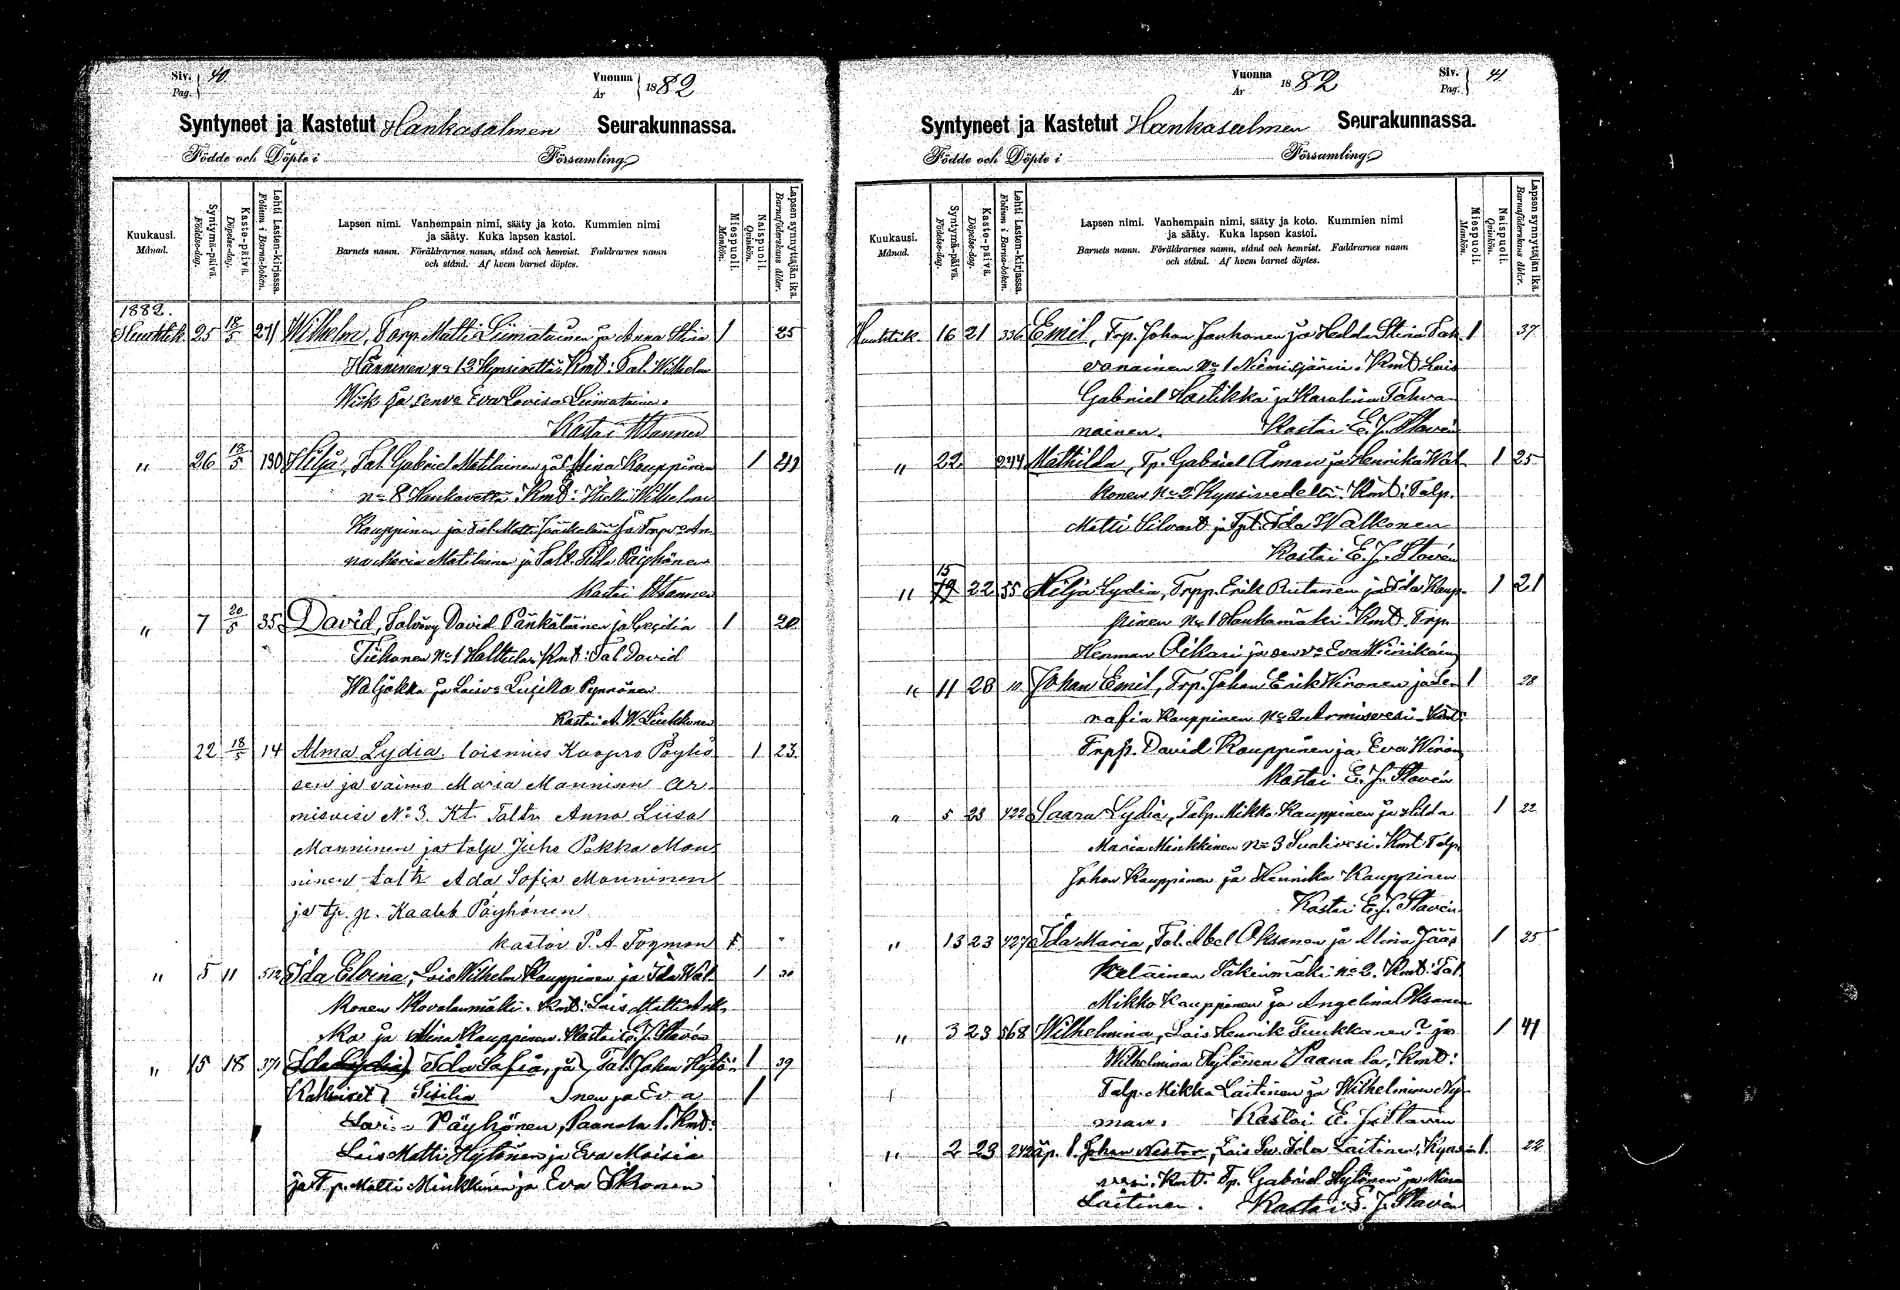 Siv. Pag. 40.
Vuonna År 1882
Syntyneet ja Kastetut Hankasalmen Seurakunnassa.
Födde och Döpte i Församling
Kuukausi. Månad.
Syntymä-päivä. Födelse-dag.
Kaste-päivä. Döpelse-dag.
Lehti Lasten-kirjassa. Folium i Barna-boken.
Lapsen nimi. Vanhempain nimi, sääty ja koto. Kummien nimi
ja sääty. Kuka lapsen kastoi.
Barnets namn. Föräldrarnes namn, stånd och hemvist. Faddrarnes namn
och stånd. Af hvem barnet döptes.
Miespuoli. Mankön.
Naispuoli. Qvinkön.
Lapsen synnyttäjän ikä. Barnaföderskans ålder.
1882.
Huhtik. 25 18/5 271 Wilhelm, Torp. Matti Liimatainen ja Anna Stina 1 25
Hänninen No 13 Kynsivettä. Kmt: Tal. Wilhelm
Wiik ja Eva Lovisa Liimatainen.
Kastoi
" 26 18/5 130 Hilja, Tal. Gabriel Matilainen ja Stina Kauppinen 1 41
No 8 Hankavettä. Kmt: Wilhelm
Kauppinen ja Tal. Matti Jääskeläinen ja An-
na Maria Matilainen ja Hilda Päyhönen
Kastoi
" 7 20/5 35 David, David Pänkäläinen ja Cecilia 1 20
Tiihonen No 1 Halttula. Kmt: Tal. David
Waljakka ja Lois Pynnönen
Kastoi A. W. Liukkonen
22 18/5 14 Alma Lydia. loismies Kaapro Pöyhö 1 23.
sen ja vaimo Maria Manninen Ar-
misvesi No 3. Kt. Taltr. Anna Liisa
Manninen ja talp Juho Pekka Man
ninen taltr Ada Sofia Manninen
ja tp. p. Kaaleb Päyhönen
kastoi P. A.
" 5 11 512 Ida Elvina, Lois Wilhelm Kauppinen ja Ida Wal- 1 30
konen Kovalanmäki. Kmt: Lois Matti
ja Miina Kauppinen. Kastoi E. J. Stavén
" 15 18 371 Ida Sofia, ja Tal. Johan Hytö- 1 39
Kaksoiset Sisilia nen ja Eva 1
Päyhönen, Paanala 1. Kmt:
Lois Matti Hytönen ja Eva Maria
ja Tp. Matti Minkkinen ja Eva Ikonen
Siv. Pag. 41.
Vuonna År 1882
Syntyneet ja Kastetut Hankasalmen Seurakunnassa.
Födde och Döpte i Församling
Kuukausi. Månad.
Syntymä-päivä. Födelse-dag.
Kaste-päivä. Döpelse-dag.
Lehti Lasten-kirjassa. Folium i Barna-boken.
Lapsen nimi. Vanhempain nimi, sääty ja koto. Kummien nimi
ja sääty. Kuka lapsen kastoi.
Barnets namn. Föräldrarnes namn, stånd och hemvist. Faddrarnes namn
och stånd. Af hvem barnet döptes.
Miespuoli. Mankön.
Naispuoli. Qvinkön.
Lapsen synnyttäjän ikä. Barnaföderskans ålder.
Huhtik. 16 21 336 Emil, Trp. Johan Jauhonen ja Hedda Stina Tah- 1 37
vanainen No 1 Niemisjärvi. Kmt. Lois
Gabriel Hastikka ja Karolina Tahva-
nainen. Kastoi E. J. Stavén
" 22 244 Mathilda, Tp. Gabriel Åman ja Henrika Wal- 1 25
konen No 2 Kynsivedeltä. Kmt: Talp.
Matti Silvast ja Tpt. Ida Walkonen
Kastoi E. J. Stavén
" 15 22 55 Hilja Lydia, Trpp. Erik Rutanen ja Ida Kaup- 1 21
pinen No 1 Hankamäki. Kmt. Trp.
Herman Oikari ja Eva
" 11 28 Johan Emil, Trp. Johan Erik Wironen ja Se- 1 28
rafia Kauppinen No 2 Armisvesi. Kmt:
Trpp. David Kauppinen ja Eva
Kastoi E. J. Stavén
" 5 23 422 Saara Lydia, Talp. Mikko Kauppinen ja Hilda 1 22
Maria Minkkinen No 3 Sualivesi. Kmt. Talp.
Johan Kauppinen ja Hennika Kauppinen
Kastoi E. J. Stavén
" 13 23 427 Ida Maria, Tal. Abel Oksanen ja Miina Jääs- 1 25
keläinen Sakinmäki No 2. Kmt: Tal.
Mikko Kauppinen ja Angelina Oksanen
" 3 23 568 Wilhelmina, Lois Henrik Tuukkanen? ja 1 41
Wilhelmina Hytönen Paanala, Kmt:
Talp. Mikko Laitinen ja Wilhelmina Ny-
man. Kastoi E. J. Stavén
" 2 23 242 äp. l. Johan Nestor, Lois Ida Laitinen, Kynsi- 1. 22
vesi. Kmt. Tp. Gabriel Hytönen ja Miina
Laitinen. Kastoi E. J. Stavén